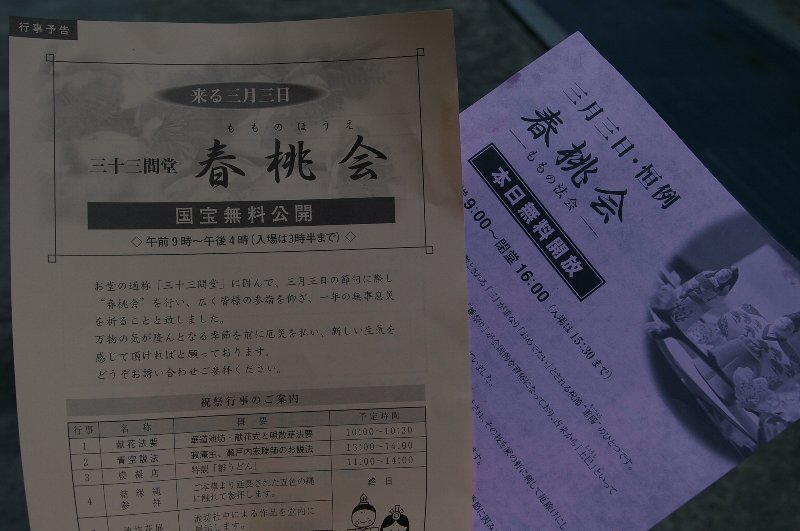 行事予告
来る三月三日
もものほうえ
三十三間堂 春桃会
国宝無料公開
◇午前9時〜午後4時(入場は3時半まで)◇
お堂の通称「三十三間堂」に因んで、三月三日の節句に際し
“春桃会”を行い、広く皆様の参詣を仰ぎ、一年の無事息災
を祈ることと致しました。
万物の気が隆んとなる季節を前に厄災を払い、新しい生気を
感じて頂ければと願っております。
どうぞお誘い合わせご参拝ください。
祝祭行事のご案内
行事 名称 概要 予定時間
1 献花法要 華道池坊・献花式と唄散華法要 10:00〜10:30
2 青空説法 寂庵主、瀬戸内寂聴師のお説法 13:00〜14:00
3 模擬店 特製「雛うどん」 11:00〜14:00
4 結縁縄参拝 ご本尊より延長された五色の縄
に触れて参拝します。 終日
池坊花展 池坊社中による作品を堂内に
展示します。
三月三日・恒例
春桃会
―ももの法会―
本日無料開放
9:00〜閉堂 16:00 (入場は 15:30 まで)